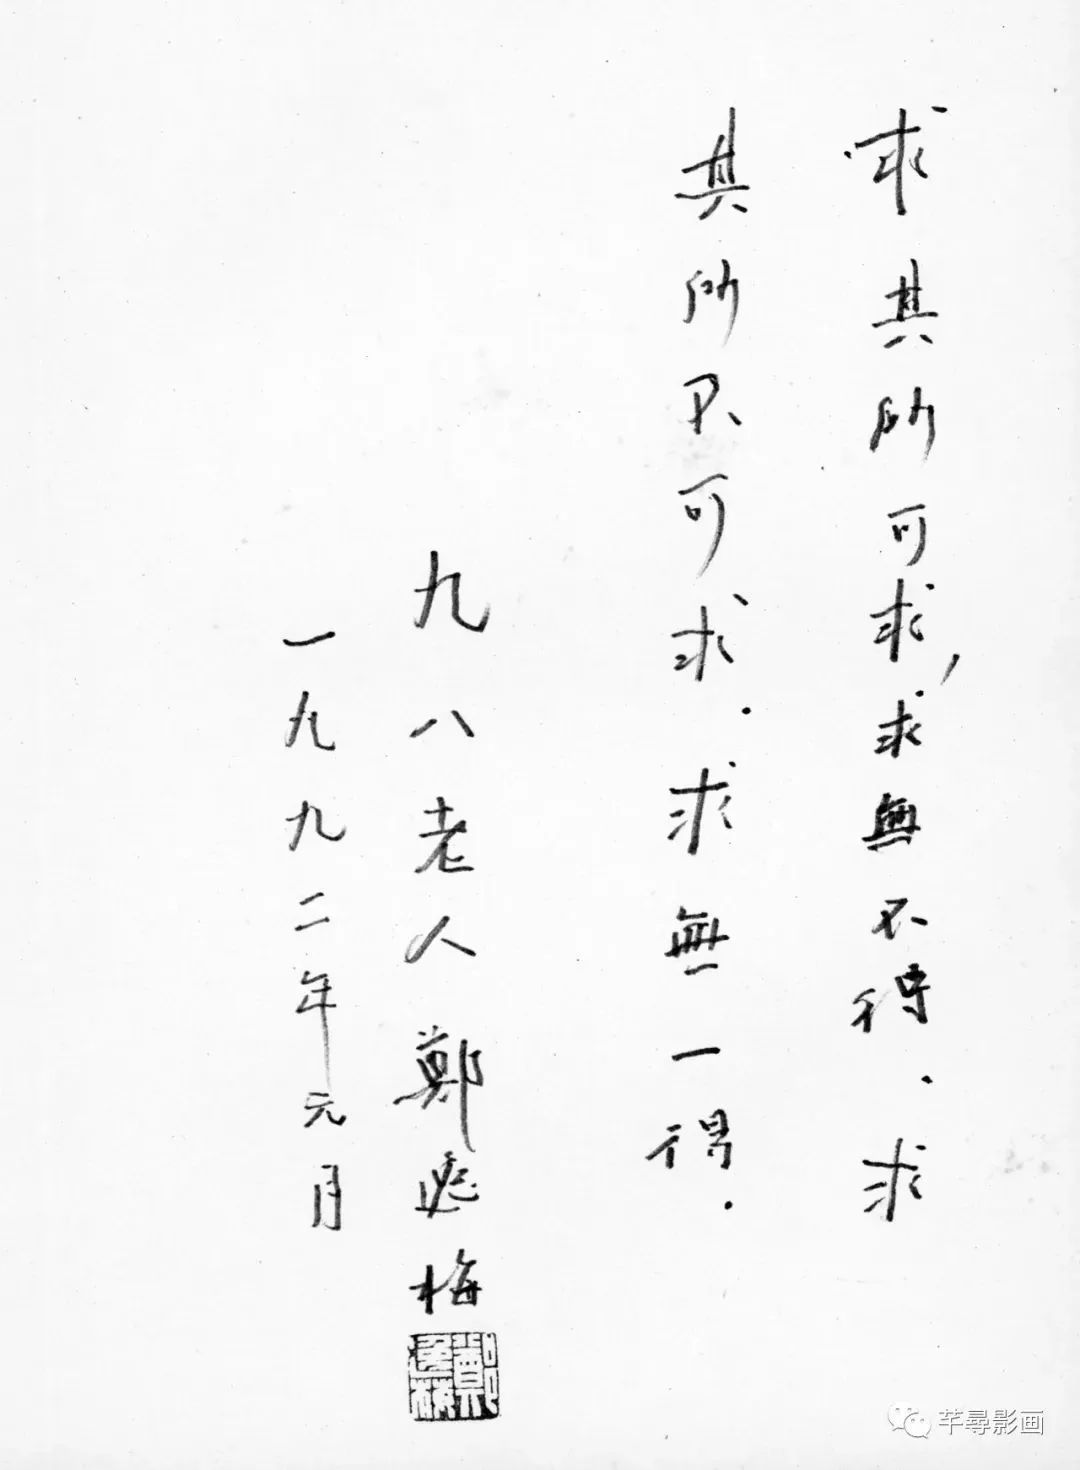 求其所可求，求無不得．求
其所不可求．求無一得．
九八老人鄭逸梅
一九九二年元月
鄭逸梅
芊尋影画